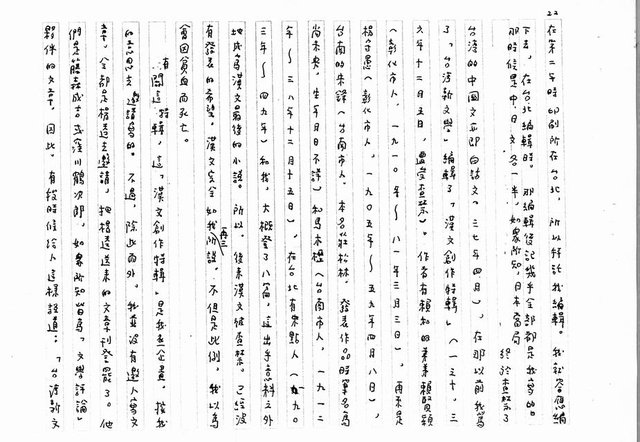 22
在第二年時印刷所在台北，所以拜託我編輯。我就答應編
下去，在台北編輯時。那編輯後記幾乎全部都是我寫的。
那時候是中、日文各一半，如眾所知，日本當局終於查禁了
台灣的中國文亦即白話文（三七年四月），在那以前我為
了「台灣新文學」編輯了「漢文創作特輯」（一三十、三
六年十二月五日，遭受查禁）。作者有賴和的弟弟賴賢穎
（彰化市人，一九一〇年～八一年三月三日），再來是
楊守愚（彰化市人，一九〇五年～五九年四月八日），
台南的朱鋒（台南市人，本名莊松林，發表作品時筆名為
尚未央，生年月日不詳）和馬木櫪（台南市人，一九一二
年～三八年十二月十五日），在台北有朱點人（一九〇
三年～四九年）和我，大概登了八篇，這出乎意料之外
地成為漢文最後的小說。所以，後來漢文被查禁。已經沒
有發表的希望，漢文完全如我再三所說，不但是此例，我以為
會因貧血而死亡。
有關這特輯，這「漢文創作特輯」是我去企畫，按我
的意思去邀請寫的。不過，除此而外。我並沒有邀人寫文
章。全都是楊逵去邀請，把楊逵送來的文章刊登罷了。他
們是藤森成吉或淺川鶴次郎，如眾所知皆為「文學評論」
夥伴的文章。因此，有段時候給人這樣說道：「台灣新文